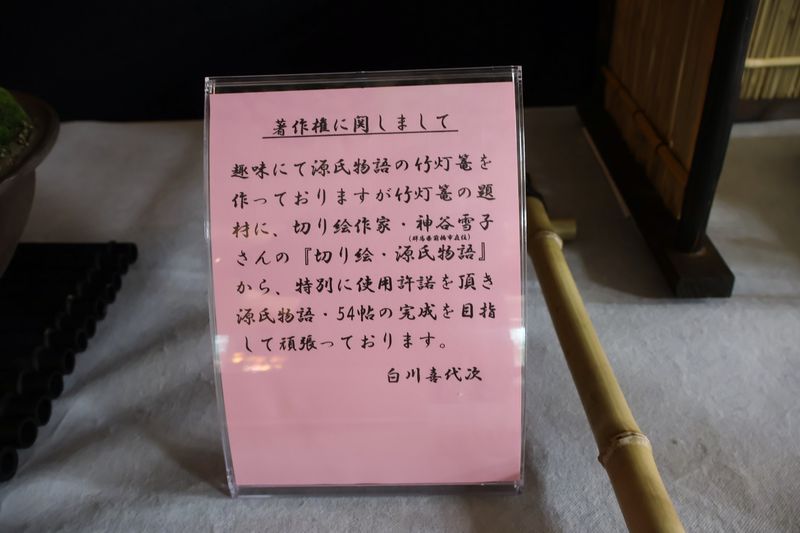 著作権に関しまして
趣味にて源氏物語の竹灯篭を
作っておりますが竹灯篭の題
材に、切り絵作家・神谷雪子
(群馬県前橋市在住)
さんの『切り絵・源氏物語』
から、特別に使用許諾を頂き
源氏物語・54帖の完成を目指
して頑張っております。
白川喜代次